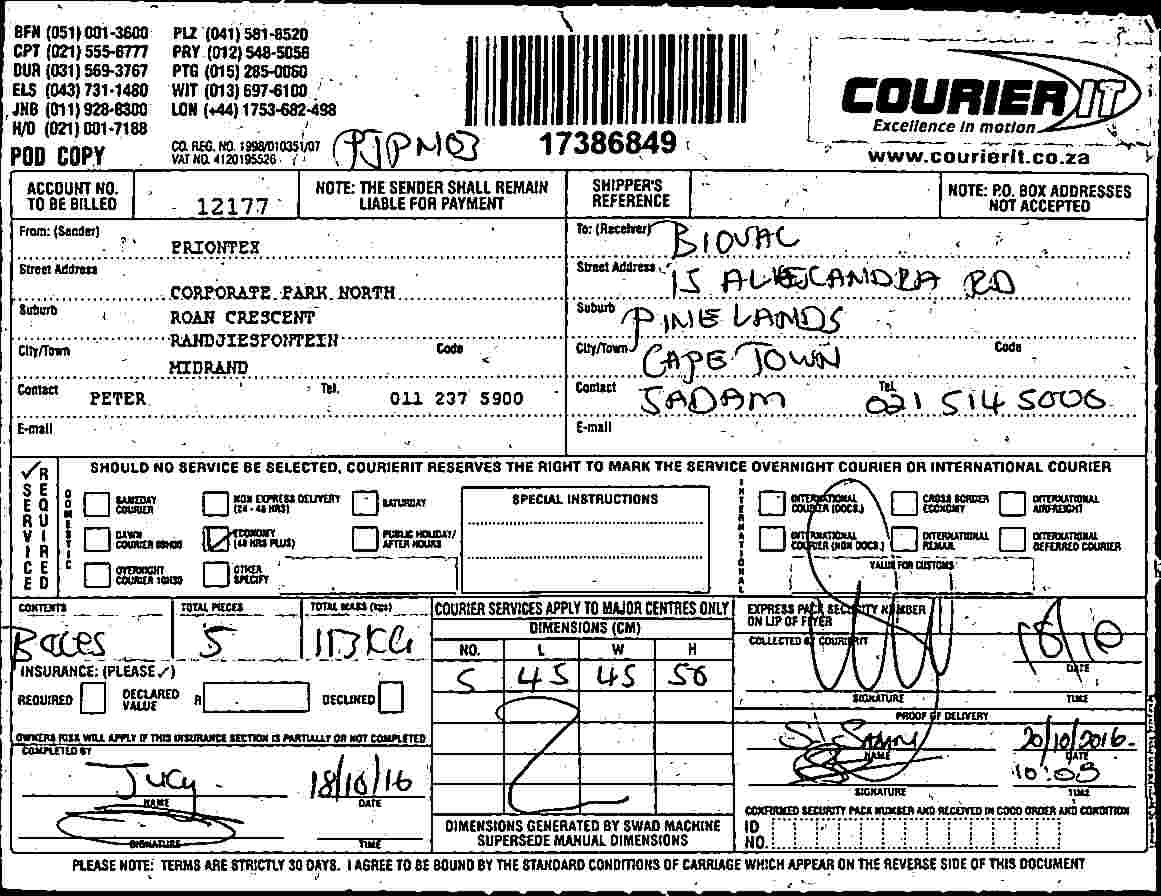 BFN (051) 001-3600 PLZ (041) 581-8520
CPT (021) 555-6777 PRY (012) 548-5058
DUR (031) 569-3767 PTG (015) 285-0060
ELS (043) 731-1480 WIT (013) 697-6100
JNB (011) 928-6300 LON (+44) 1753-682-498
H/O (021) 001-7188
POD COPY
CO. REG. NO. 1998/010351/07
VAT NO. 4120195526
PJPN03
17386849
COURIER IT
Excellence in motion
www.courierit.co.za
ACCOUNT NO. TO BE BILLED
12177
NOTE: THE SENDER SHALL REMAIN LIABLE FOR PAYMENT
SHIPPER'S REFERENCE
NOTE: P.O. BOX ADDRESSES NOT ACCEPTED
From: (Sender)
PRIONTEX
Street Address
CORPORATE PARK NORTH
Suburb
ROAN CRESCENT
RANDJIESFONTEIN
City/Town
Code
MIDRAND
Contact
PETER
Tel.
011 237 5900
E-mail
To: (Receiver)
BIOVAC
Street Address
15 ALEXANDRA RD
Suburb
PINELANDS
City/Town
CAPE TOWN
Code
Contact
SADAM
Tel.
021 514 5000
E-mail
SHOULD NO SERVICE BE SELECTED, COURIERIT RESERVES THE RIGHT TO MARK THE SERVICE OVERNIGHT COURIER OR INTERNATIONAL COURIER
✓ SERVICE REQUIRED
DOMESTIC
SAMEDAY COURIER
NON EXPRESS DELIVERY (24 - 48 HRS)
SATURDAY
DAWN COURIER 08H00
ECONOMY (48 HRS PLUS)
PUBLIC HOLIDAY/ AFTER HOURS
OVERNIGHT COURIER 10H30
OTHER SPECIFY
SPECIAL INSTRUCTIONS
INTERNATIONAL
INTERNATIONAL COURIER (DOCS.)
CROSS BORDER ECONOMY
INTERNATIONAL AIRFREIGHT
INTERNATIONAL COURIER (NON DOCS.)
INTERNATIONAL REMAIL
INTERNATIONAL DEFERRED COURIER
VALUE FOR CUSTOMS
CONTENTS
TOTAL PIECES
TOTAL MASS (kgs)
Boxes
5
113KG
INSURANCE: (PLEASE ✓)
REQUIRED
DECLARED VALUE
R
DECLINED
OWNERS RISK WILL APPLY IF THIS INSURANCE SECTION IS PARTIALLY OR NOT COMPLETED
COMPLETED BY
Jucy
18/10/16
NAME
DATE
SIGNATURE
TIME
COURIER SERVICES APPLY TO MAJOR CENTRES ONLY
DIMENSIONS (CM)
NO. L W H
5 45 45 50
DIMENSIONS GENERATED BY SWAD MACHINE
SUPERSEDE MANUAL DIMENSIONS
EXPRESS PACK SECURITY NUMBER
ON LIP OF FLYER
COLLECTED BY COURIERIT
18/10
DATE
SIGNATURE
TIME
PROOF OF DELIVERY
20/10/2016
NAME
DATE
10:05
SIGNATURE
TIME
CONFIRMED SECURITY PACK NUMBER AND RECEIVED IN GOOD ORDER AND CONDITION
ID NO.
PLEASE NOTE: TERMS ARE STRICTLY 30 DAYS. I AGREE TO BE BOUND BY THE STANDARD CONDITIONS OF CARRIAGE WHICH APPEAR ON THE REVERSE SIDE OF THIS DOCUMENT